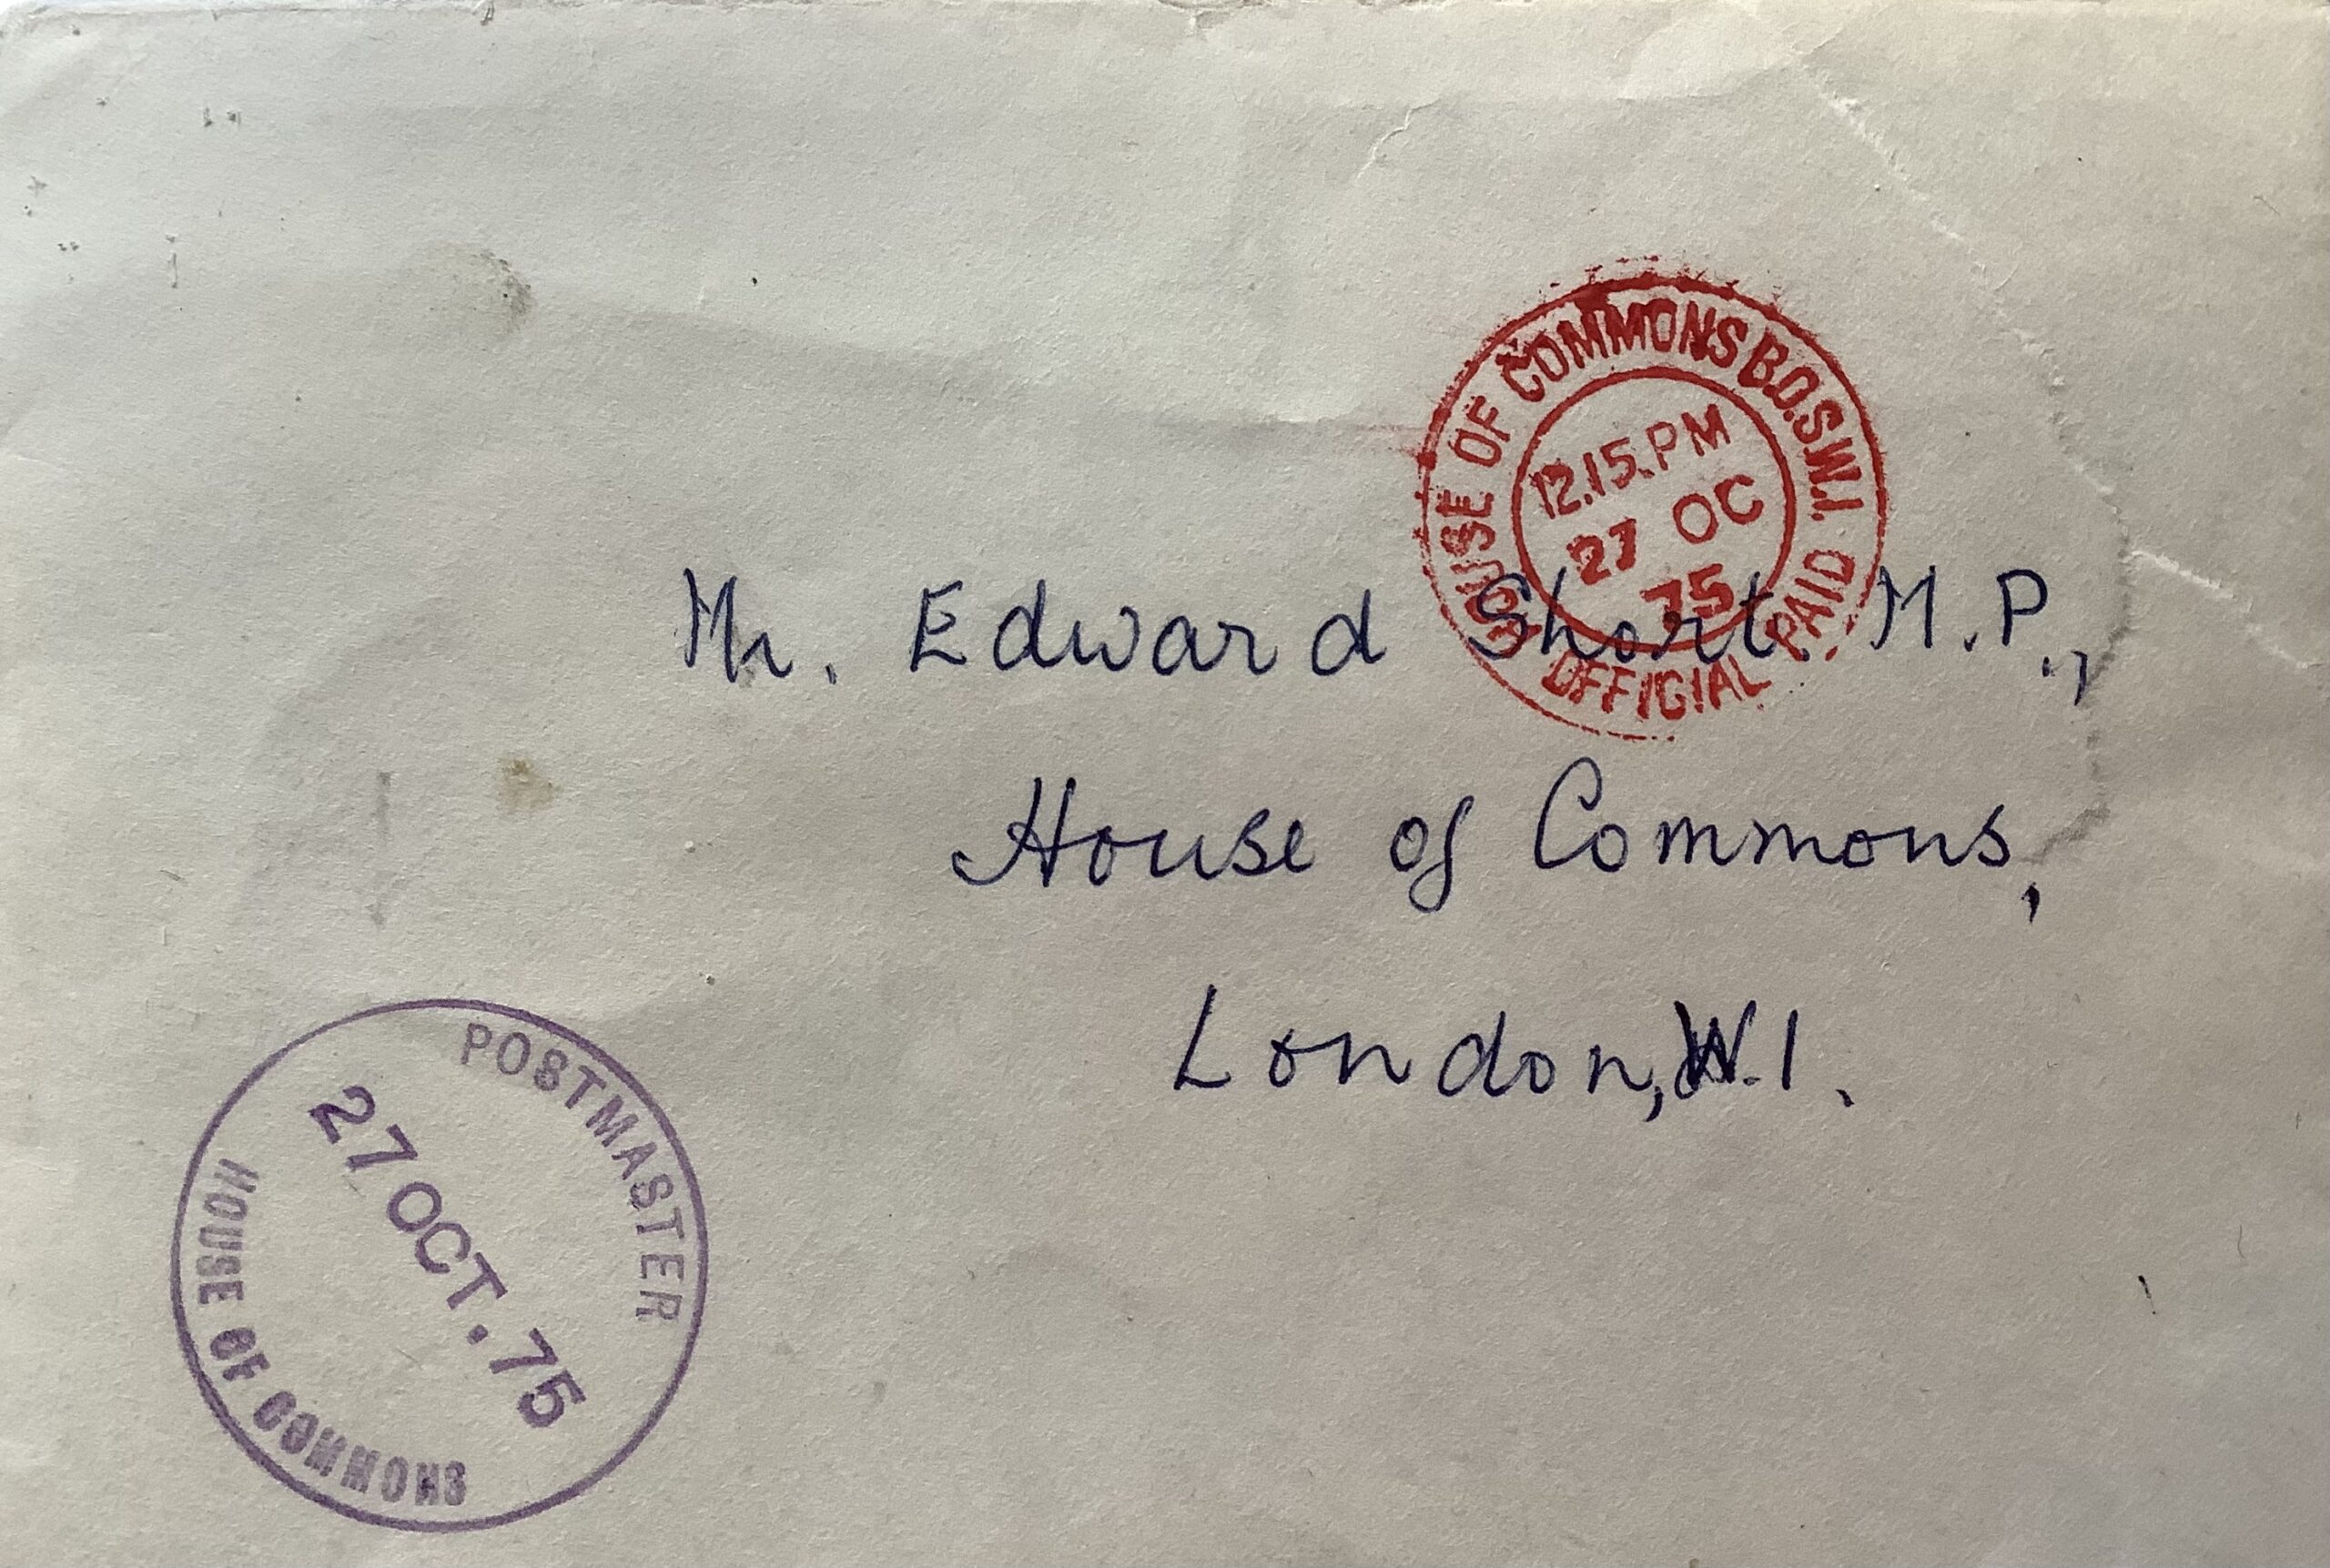 HOUSE OF COMMONS B.O.S.W.1.
12.15.PM
27 OC
75
OFFICIAL PAID
Mr. Edward Short. M.P.,
House of Commons,
London, W.1.
POSTMASTER
27 OCT. 75
HOUSE OF COMMONS